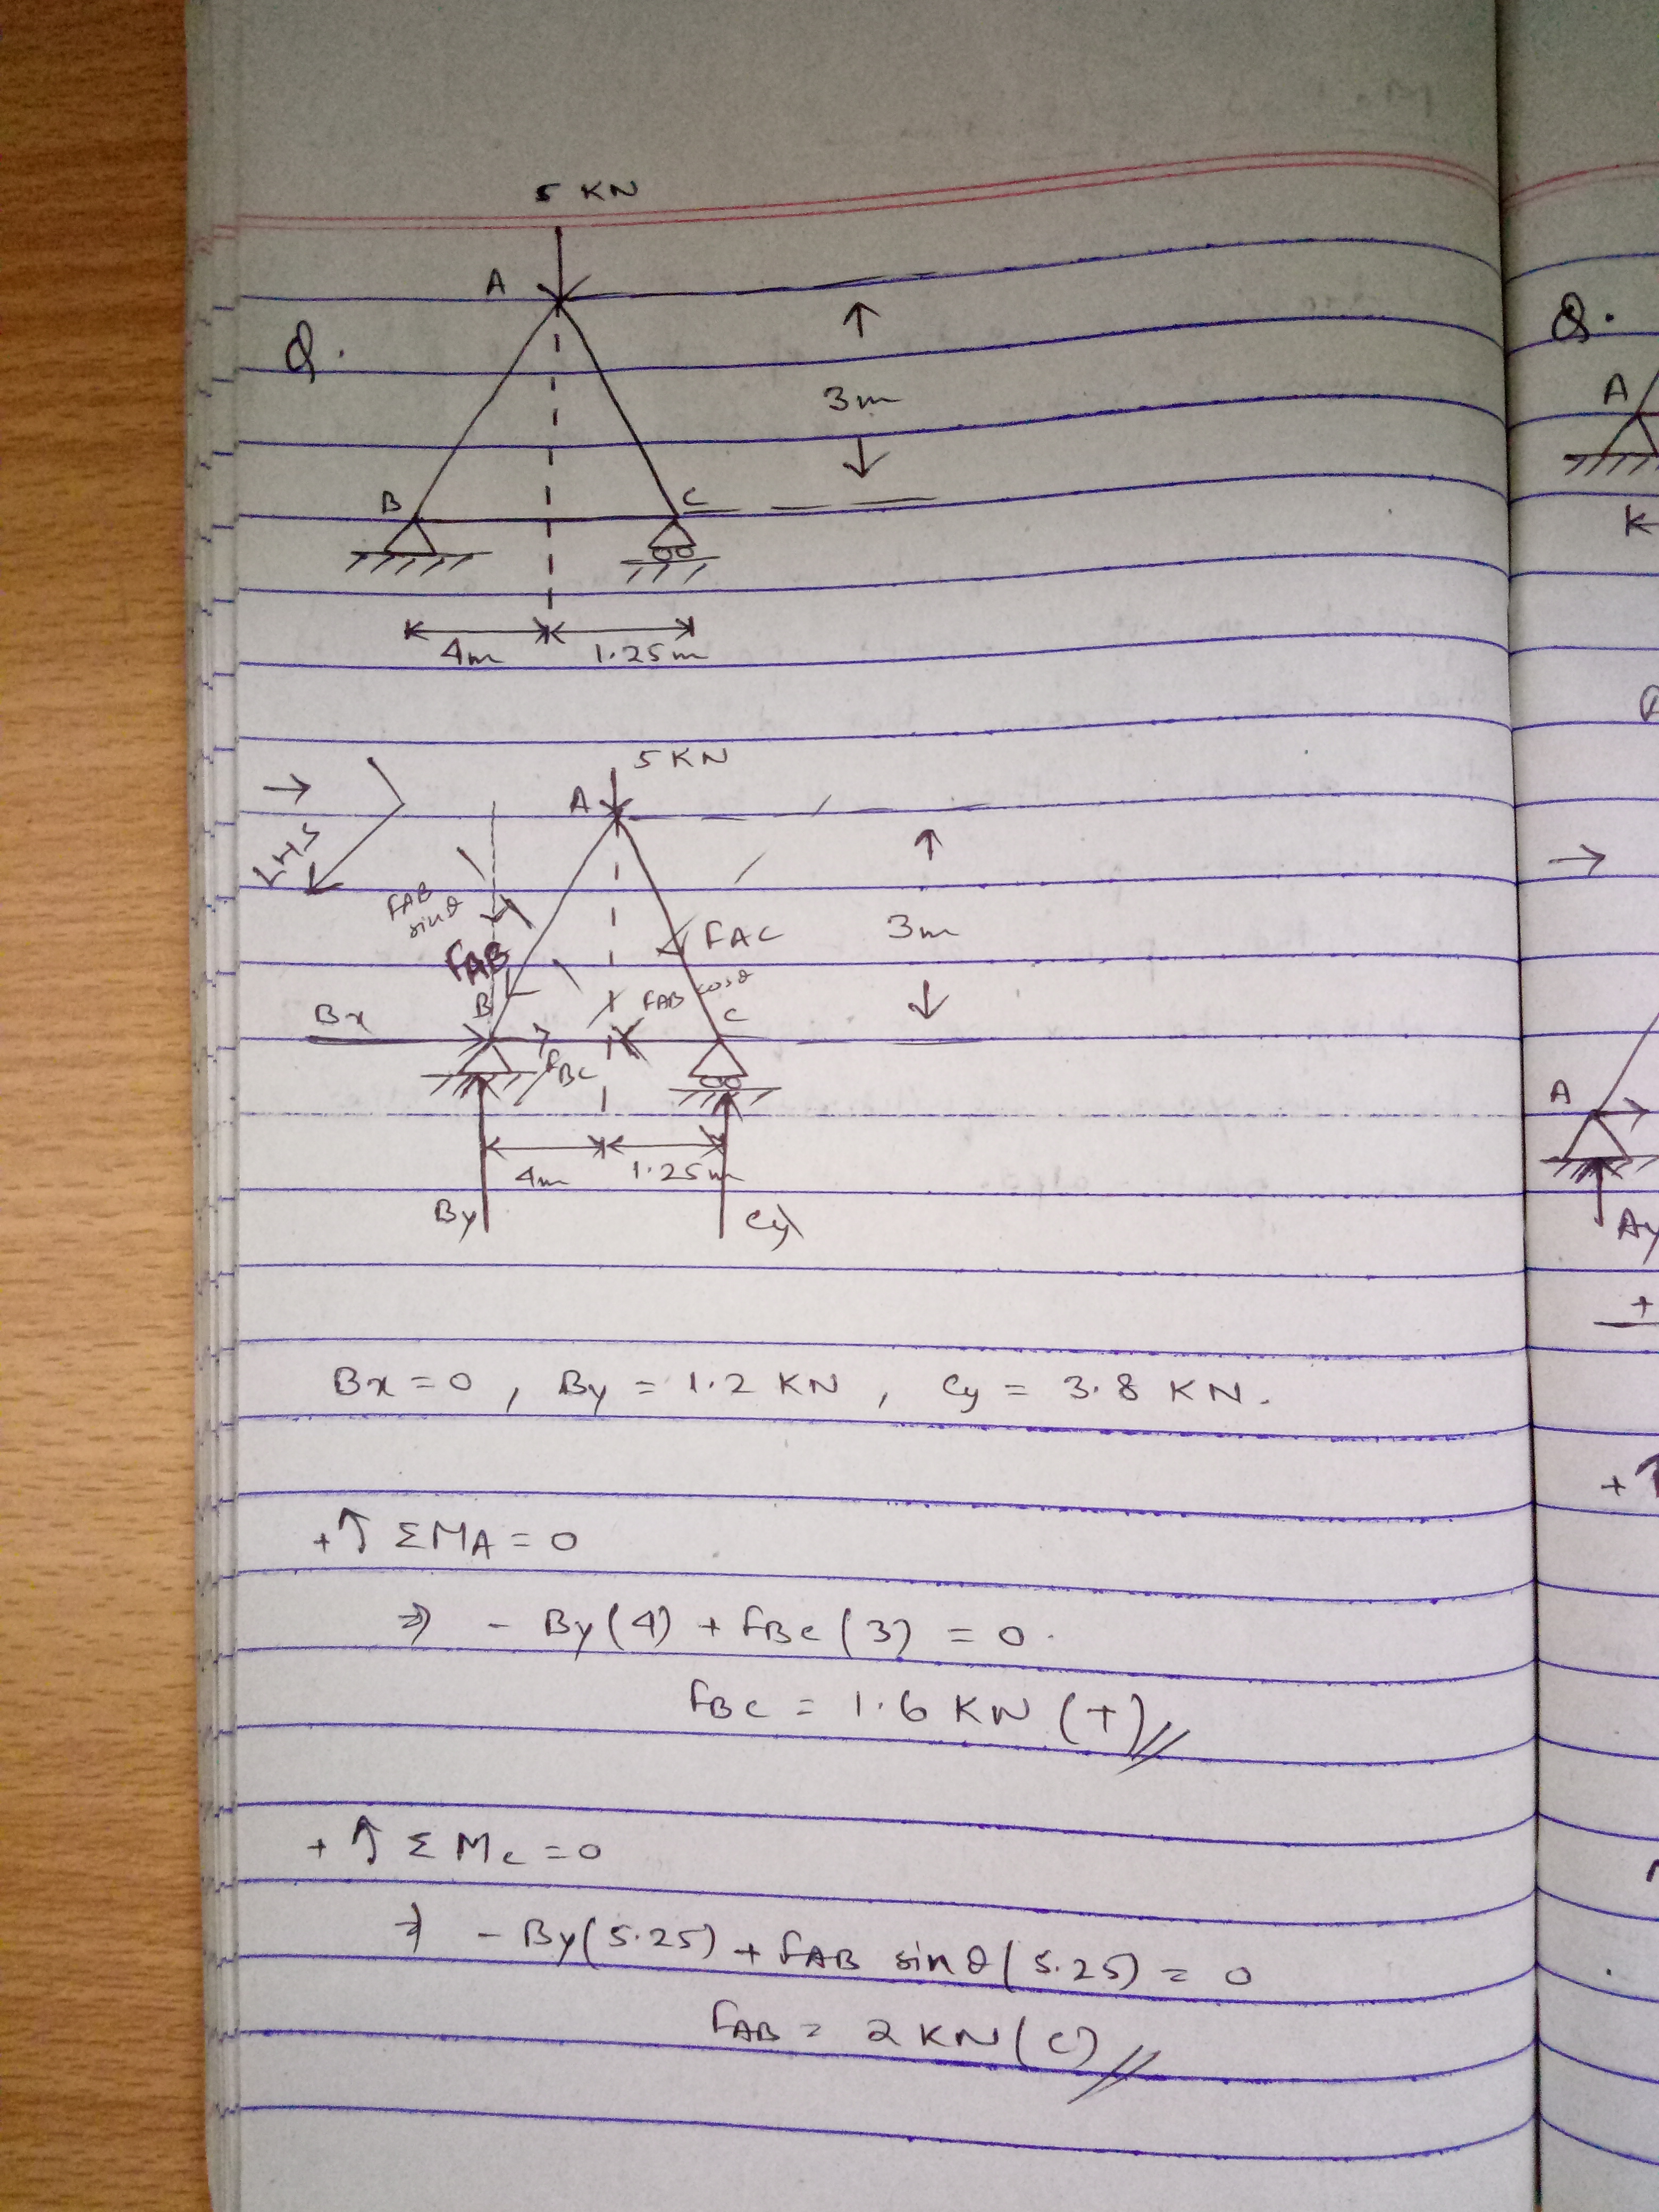 5 KN
A
Q.
3m
B
C
4m 1.25m
5 KN
A
LHS
FAB
sinθ
FAC
3m
FAB
B
FAB cosθ
C
Bx
FBC
4m 1.25m
By
Cy
Bx = 0 , By = 1.2 KN , Cy = 3.8 KN.
+↑ ΣMA = 0
⇒ - By(4) + FBC(3) = 0.
FBC = 1.6 KN (T)//
+↑ ΣMC = 0
⇒ - By(5.25) + FAB sinθ(5.25) = 0
FAB = 2 KN (C)//
Q.
A
A
Ay
+
+↑